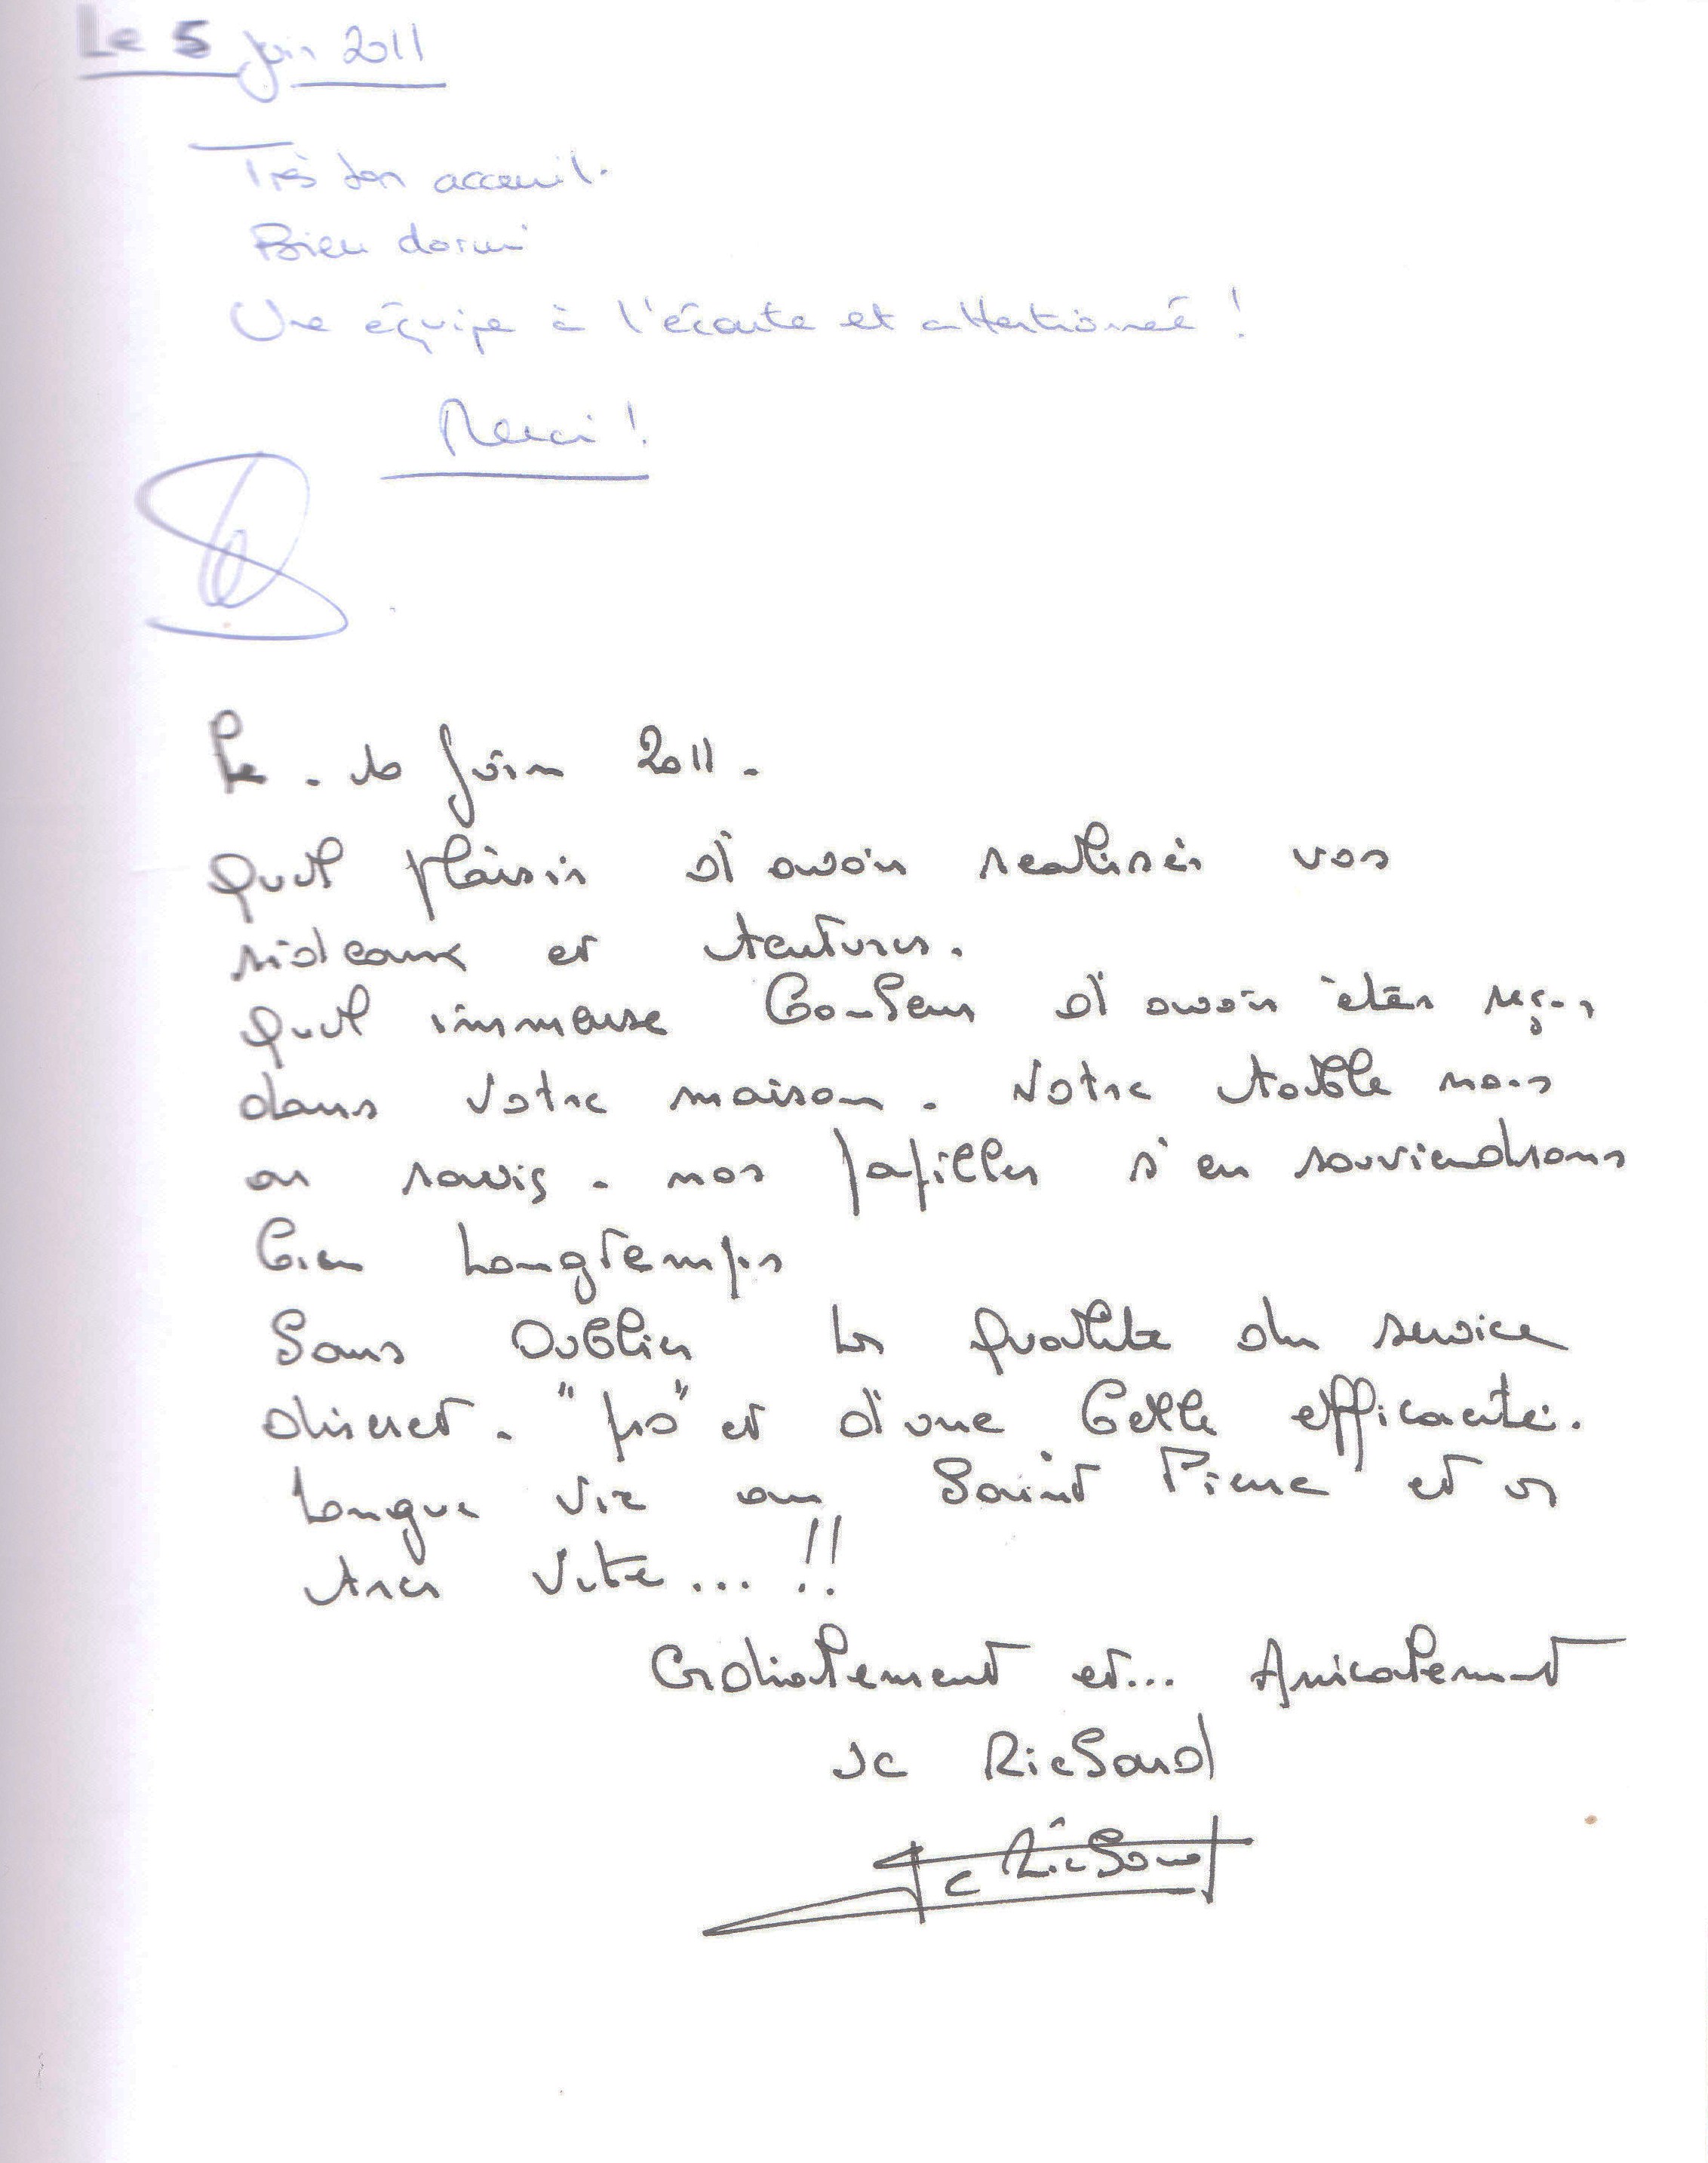 Le 5 Juin 2011
Très bon acceuil.
Bien dormi
Une équipe à l'écoute et attentionnée !
Merci !
Le . 10 Juin 2011 .
Quel plaisir d'avoir realiser vos
rideaux et tentures.
Quel immense bonheur d'avoir étér reçus
dans votre maison . Votre table nous
a ravis . nos papilles s'en souviendrons
bien Longtemps
Sans oublier la qualité du service
discret . "pro" et d'une belle efficacité .
Longue vie au Saint Pierre et a
tres vite ... !!
Cordialement et... Amicalement
JC Richard
JC Richard